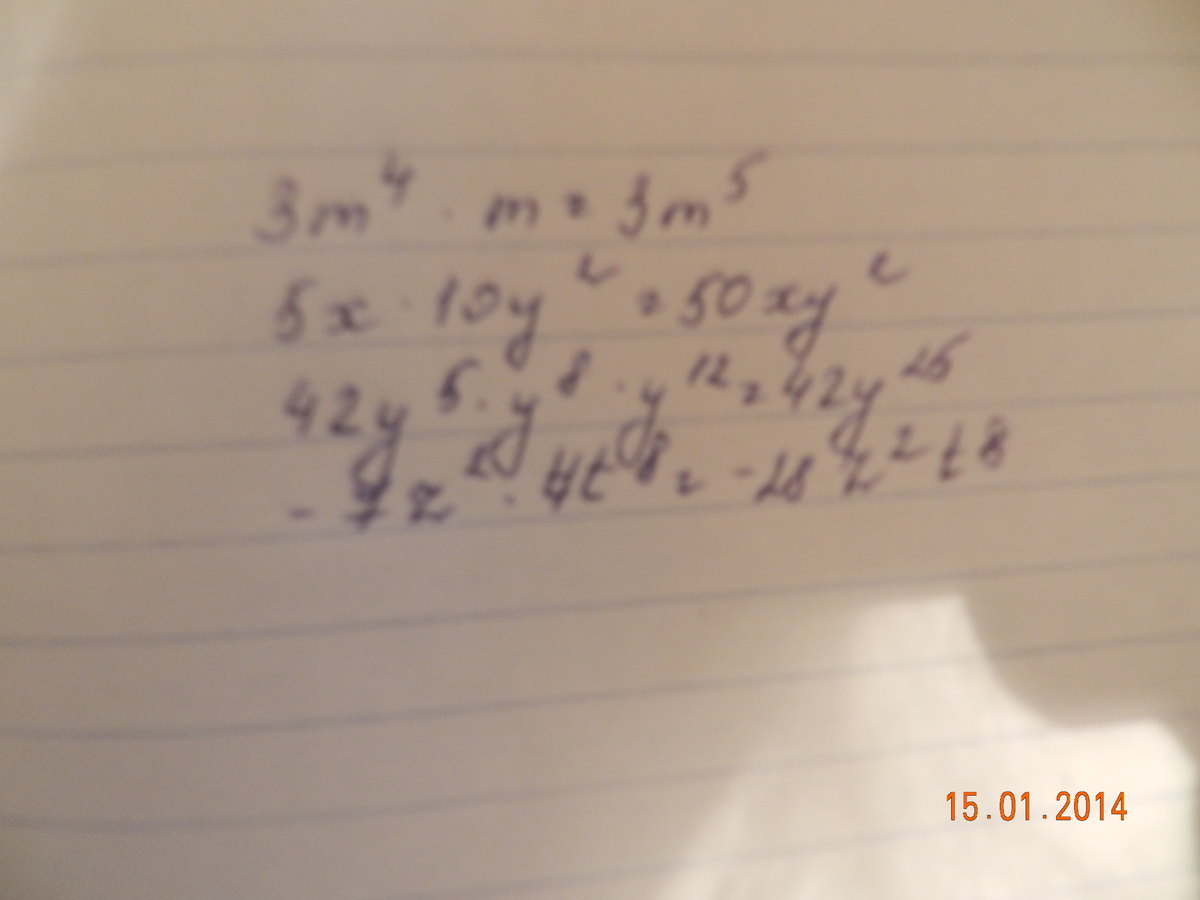 3m⁴ · m = 3m⁵
5x · 10y² = 50xy²
42y⁵ · y⁸ · y¹² = 42y²⁵
- 7z² · 4t⁸ = -28z²t⁸
15.01.2014